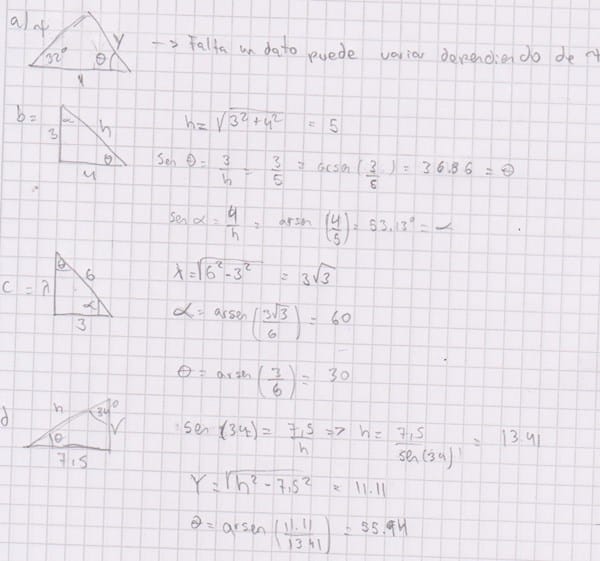 a) x
32° θ y
4
-> Falta un dato puede variar dependiendo de x
b = 3 α h θ 4
h = √3²+4² = 5
sen θ = 3/h = 3/5 = arcsen (3/5) = 36.86 = θ
sen α = 4/h = arsen (4/5) = 53.13° = α
c = λ θ 6 α 3
λ = √6²-3² = 3√3
α = arsen (3√3/6) = 60
θ = arsen (3/6) = 30
d h 34° θ Y 7,5
sen (34) = 7,5/h => h = 7,5/sen(34) = 13.41
Y = √h²-7,5² = 11.11
θ = arsen (11.11/13.41) = 55.94